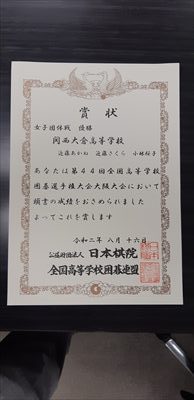 賞状
女子団体戦 優勝
関西大倉高等学校
近藤あかね 近藤さくら 小林桜子
あなたは第44回全国高等学校
囲碁選手権大会大阪大会において
頭書の成績をおさめられました
よってこれを賞します
令和二年 八月 十六日
公益財団法人 日本棋院
全国高等学校囲碁連盟